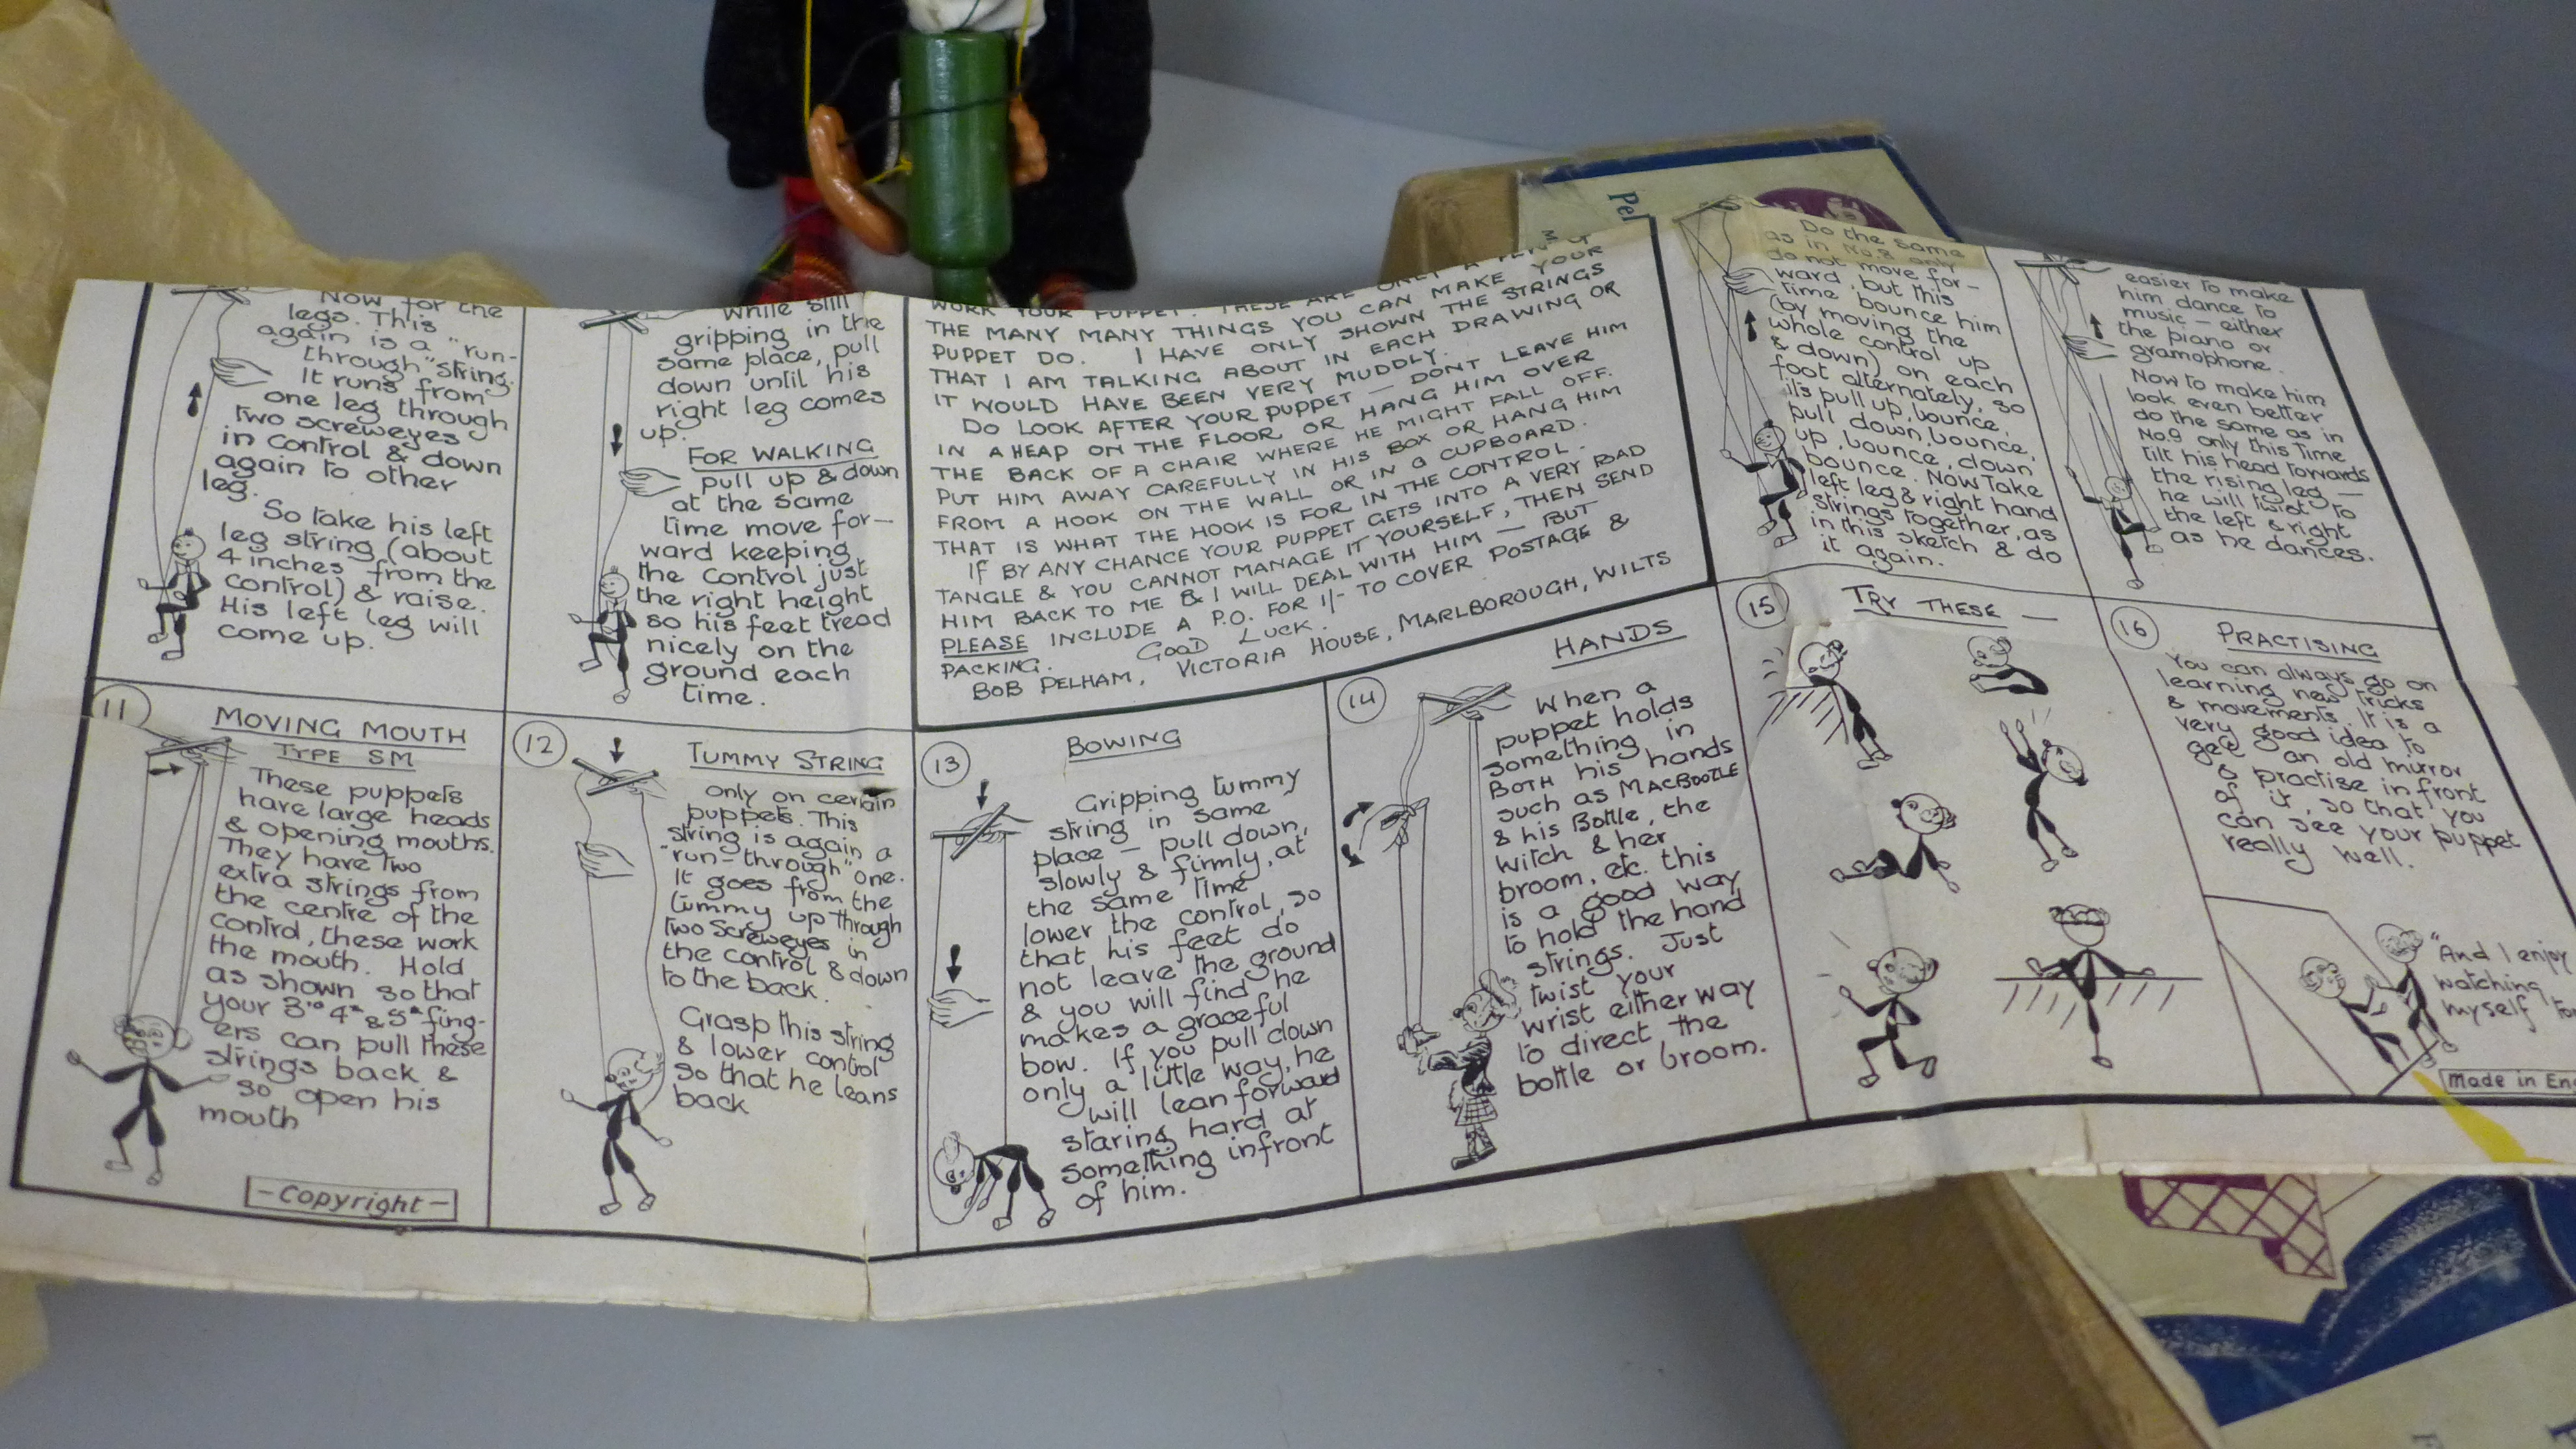 Pel
Now for the
legs. This
again is a "run-
through" string.
It runs from
one leg through
two screweyes
in control & down
again to other
leg.
So take his left
leg string (about
4 inches from the
control) & raise.
His left leg will
come up.
While still
gripping in the
same place, pull
down until his
right leg comes
up.
FOR WALKING
pull up & down
at the same
time move for-
ward keeping
the control just
the right height
so his feet tread
nicely on the
ground each
time.
WORK YOUR PUPPET. THESE ARE ONLY A FEW OF
THE MANY MANY THINGS YOU CAN MAKE YOUR
PUPPET DO. I HAVE ONLY SHOWN THE STRINGS
THAT I AM TALKING ABOUT IN EACH DRAWING OR
IT WOULD HAVE BEEN VERY MUDDLY.
DO LOOK AFTER YOUR PUPPET — DONT LEAVE HIM
IN A HEAP ON THE FLOOR OR HANG HIM OVER
THE BACK OF A CHAIR WHERE HE MIGHT FALL OFF.
PUT HIM AWAY CAREFULLY IN HIS BOX OR HANG HIM
FROM A HOOK ON THE WALL OR IN A CUPBOARD.
THAT IS WHAT THE HOOK IS FOR IN THE CONTROL.
IF BY ANY CHANCE YOUR PUPPET GETS INTO A VERY BAD
TANGLE & YOU CANNOT MANAGE IT YOURSELF, THEN SEND
HIM BACK TO ME & I WILL DEAL WITH HIM — BUT
PLEASE INCLUDE A P.O. FOR 1/- TO COVER POSTAGE &
PACKING. GOOD LUCK.
BOB PELHAM, VICTORIA HOUSE, MARLBOROUGH, WILTS
Do the same
as in No.8 only
do not move for-
ward, but this
time bounce him
(by moving the
whole control up
& down) on each
foot alternately, so
it's pull up, bounce,
pull down, bounce,
up, bounce, down
bounce. Now take
left leg & right hand
strings together, as
in this sketch & do
it again.
easier to make
him dance to
music — either
the piano or
gramophone.
Now to make him
look even better
do the same as in
No.9 only this time
tilt his head towards
the rising leg —
he will twist to
the left & right
as he dances.
11
MOVING MOUTH
TYPE SM
These puppets
have large heads
& opening mouths.
They have two
extra strings from
the centre of the
control, these work
the mouth. Hold
as shown so that
your 3rd 4th & 5th fing-
ers can pull these
strings back &
so open his
mouth
-Copyright-
12
TUMMY STRING
only on certain
puppets. This
string is again a
"run-through" one.
It goes from the
tummy up through
two screweyes in
the control & down
to the back.
Grasp this string
& lower control
so that he leans
back
13
BOWING
Gripping tummy
string in same
place — pull down,
slowly & firmly, at
the same time
lower the control, so
that his feet do
not leave the ground
& you will find he
makes a graceful
bow. If you pull down
only a little way, he
will lean forward
staring hard at
something infront
of him.
14
HANDS
When a
puppet holds
something in
BOTH his hands
such as MACBOOZLE
& his Bottle, the
witch & her
broom, etc. this
is a good way
to hold the hand
strings. Just
twist your
wrist either way
to direct the
bottle or broom.
15
TRY THESE —
16
PRACTISING
You can always go on
learning new tricks
& movements. It is a
very good idea to
get an old mirror
& practise in front
of it, so that you
can see your puppet
really well.
"And I enjoy
watching
myself
Made in Eng